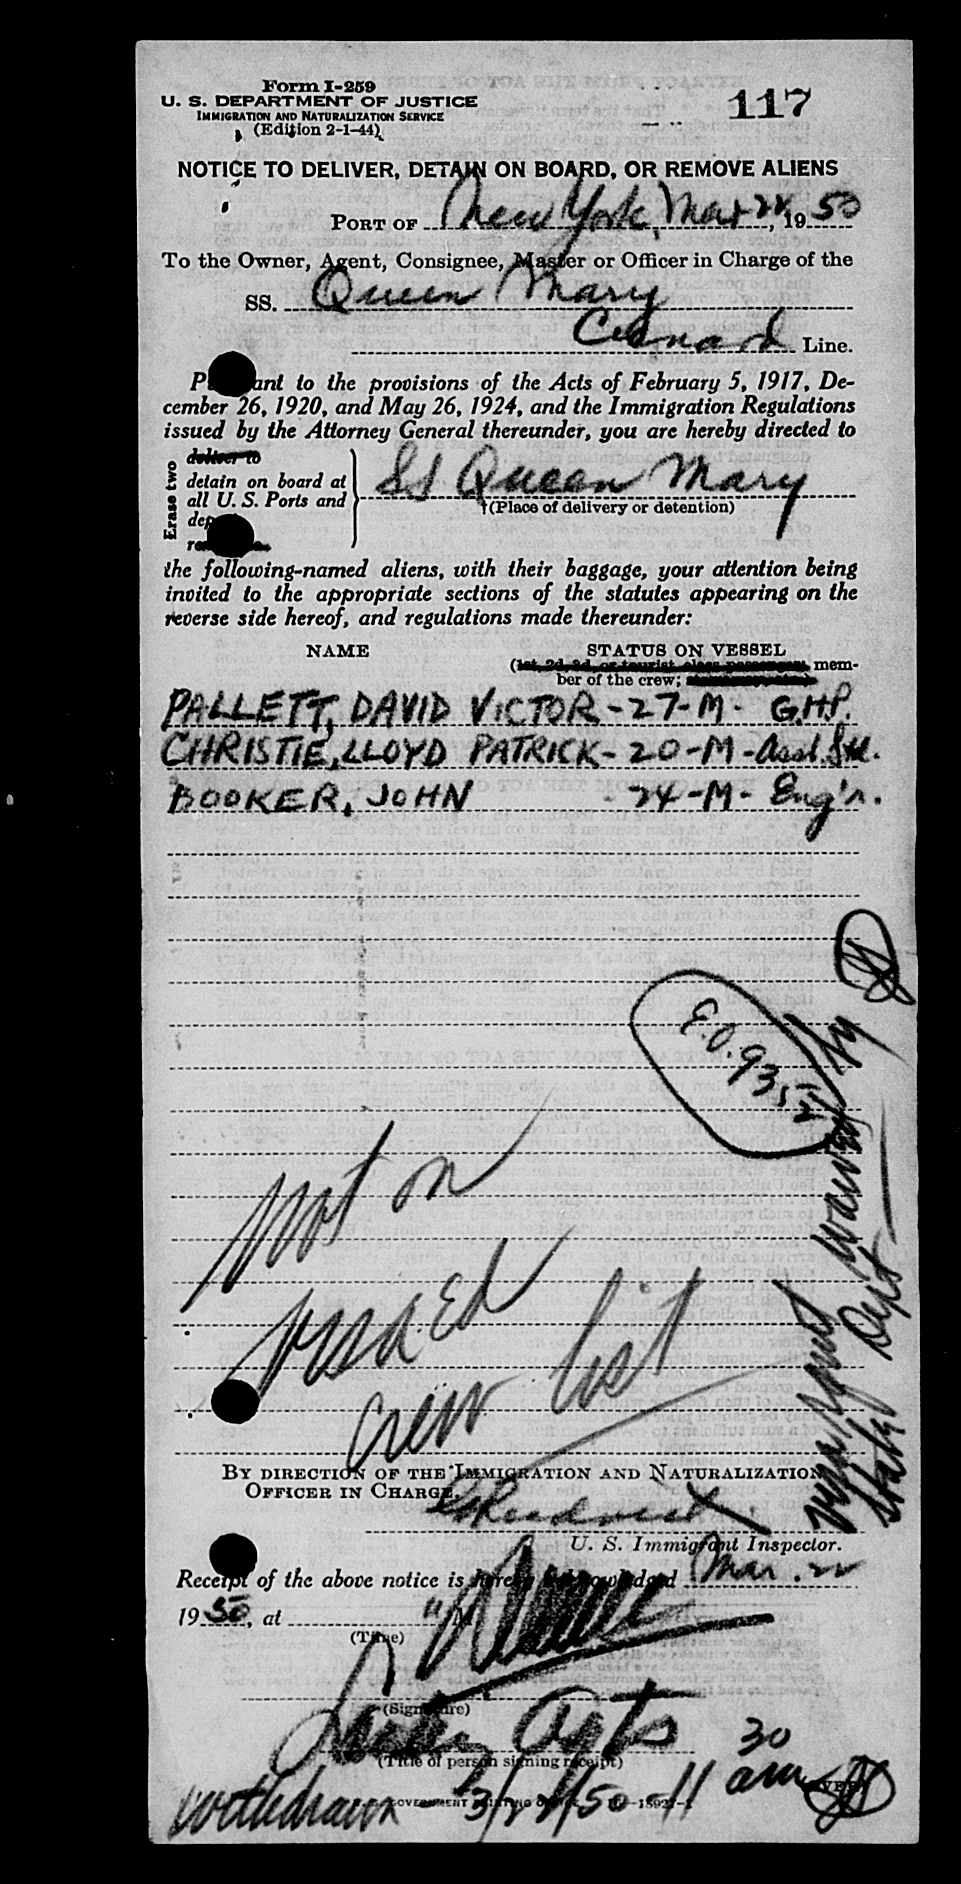 Form I-259
U. S. DEPARTMENT OF JUSTICE
IMMIGRATION AND NATURALIZATION SERVICE
(Edition 2-1-44)
117
NOTICE TO DELIVER, DETAIN ON BOARD, OR REMOVE ALIENS
PORT OF New York, Mar 22, 1950
To the Owner, Agent, Consignee, Master or Officer in Charge of the
SS. Queen Mary
Cunard Line.
ant to the provisions of the Acts of February 5, 1917, De-
cember 26, 1920, and May 26, 1924, and the Immigration Regulations
issued by the Attorney General thereunder, you are hereby directed to
Erase two
deliver to
detain on board at
all U. S. Ports and
SS Queen Mary
(Place of delivery or detention)
the following-named aliens, with their baggage, your attention being
invited to the appropriate sections of the statutes appearing on the
reverse side hereof, and regulations made thereunder:
NAME STATUS ON VESSEL
(1st, 2d, 3d, or tourist class passenger, mem-
ber of the crew;
PALLETT, DAVID VICTOR - 27 - M - G.H.P.
CHRISTIE, LLOYD PATRICK - 20 - M - Asst. Std.
BOOKER, JOHN - 24 - M - Eng'r.
E.O. 9352
Visa reqmt waived by
State Dept
not on
visaed
crew list
BY DIRECTION OF THE IMMIGRATION AND NATURALIZATION
OFFICER IN CHARGE.
U. S. Immigrant Inspector.
Receipt of the above notice is hereby acknowledged Mar. 22
1950, at M
(Time)
(Signature)
(Title of person signing receipt)
Withdrawn 3/22/50 11 30 am
(OVER)
GOVERNMENT PRINTING OFFICE